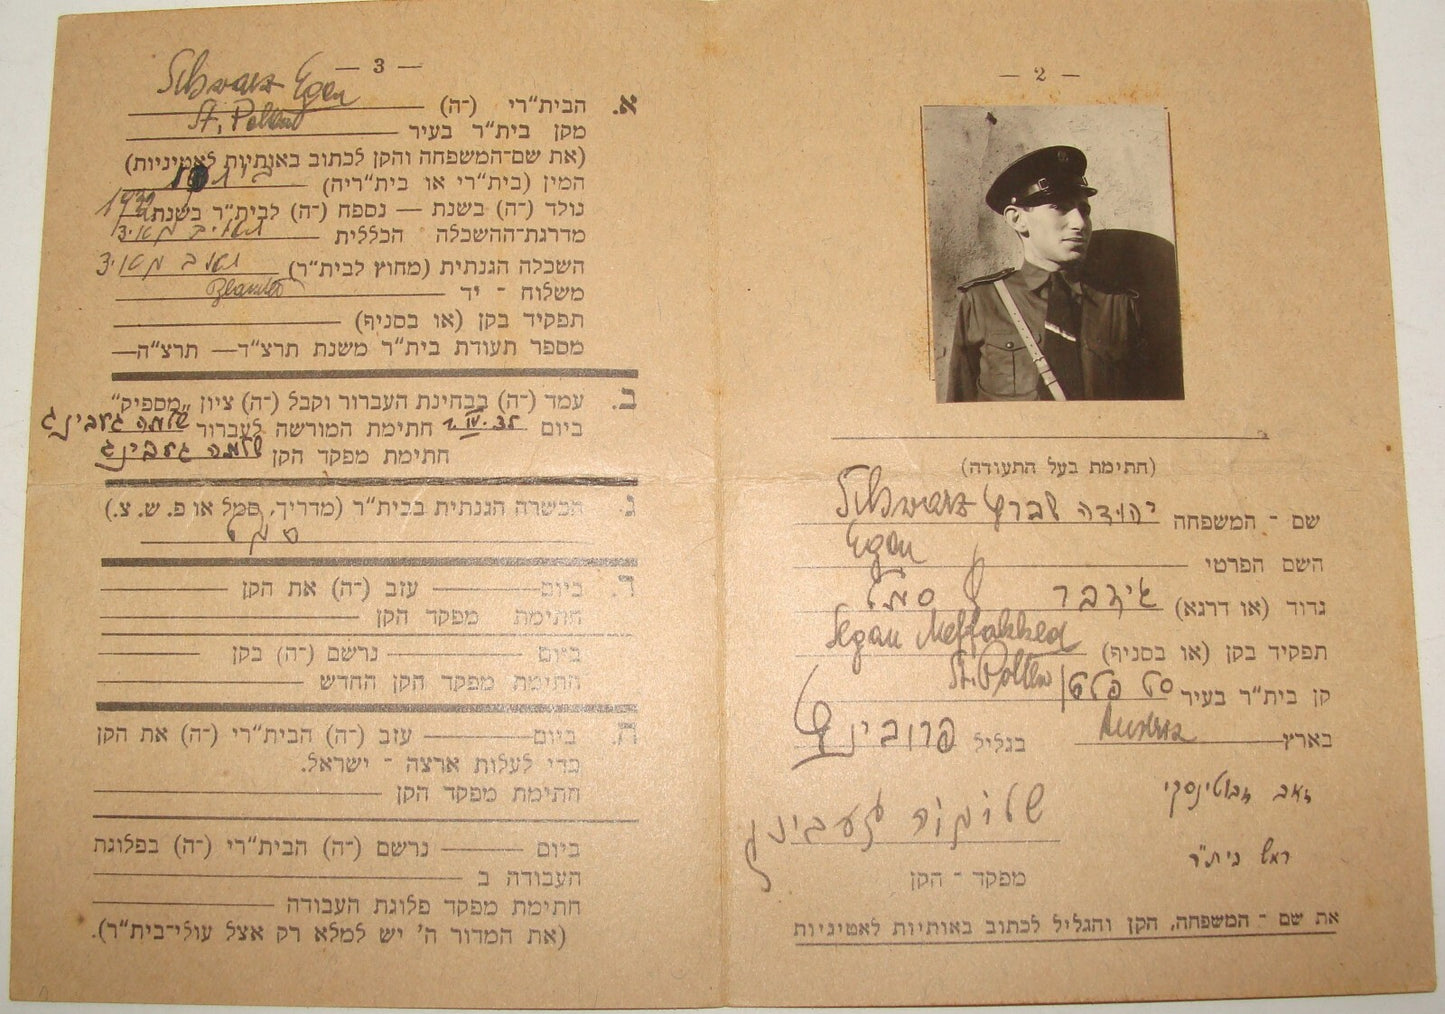 — 2 —
(חתימת בעל התעודה)
שם - המשפחה יהודה שברץ Schwarz
השם הפרטי Egon
גדוד (או דרגא) סמל
תפקיד בקן (או בסניף) Segan Meffakked
קן בית"ר בעיר סט פלטן St. Pölten
בארץ Austria בגליל פרובינץ
זאב זבוטינסקי
ראש בית"ר
מפקד - הקן
את שם - המשפחה, הקן והגליל לכתוב באותיות לאטיניות
— 3 —
א. הבית"רי (-ה) Schwarz Egon
מקן בית"ר בעיר St. Pölten
(את שם-המשפחה והקן לכתוב באותיות לאטיניות)
המין (בית"רי או בית"ריה)
נולד (-ה) בשנת — נספח (-ה) לבית"ר בשנת
מדרגת-ההשכלה הכללית
השכלה הגנתית (מחוץ לבית"ר)
משלוח - יד
תפקיד בקן (או בסניף)
מספר תעודת בית"ר משנת תרצ"ד— תרצ"ה—
ב. עמד (-ה) בבחינת העברור וקבל (-ה) ציון „מספיק"
ביום חתימת המורשה לעברור
חתימת מפקד הקן
ג. הכשרה הגנתית בבית"ר (מדריך, סמל או פ. ש. צ.)
סמל
ד. ביום— עזב (-ה) את הקן
חתימת מפקד הקן
ביום — נרשם (-ה) בקן
חתימת מפקד הקן החדש
ה. ביום— עזב (-ה) הבית"רי (-ה) את הקן
כדי לעלות ארצה - ישראל.
חתימת מפקד הקן
ביום — נרשם (-ה) הבית"רי (-ה) בפלוגת
העבודה ב
חתימת מפקד פלוגת העבודה
(את המדור ה' יש למלא רק אצל עולי-בית"ר).